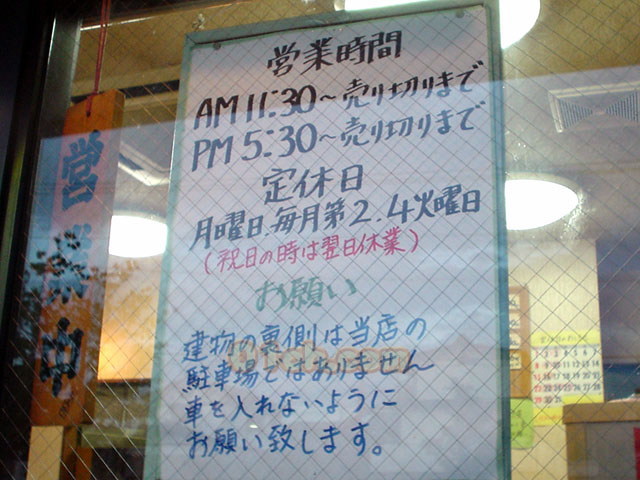 営業中
営業時間
AM11:30～売り切りまで
PM5:30～売り切りまで
定休日
月曜日.毎月第2.4火曜日
(祝日の時は翌日休業)
お願い
建物の裏側は当店の
駐車場ではありません
車を入れないように
お願い致します。